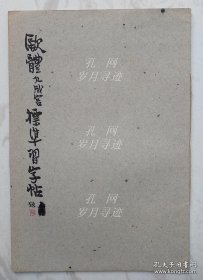 歐體九成宮標準習字帖
孔网
岁月寻迹
孔网
岁月寻迹
孔网
岁月寻迹